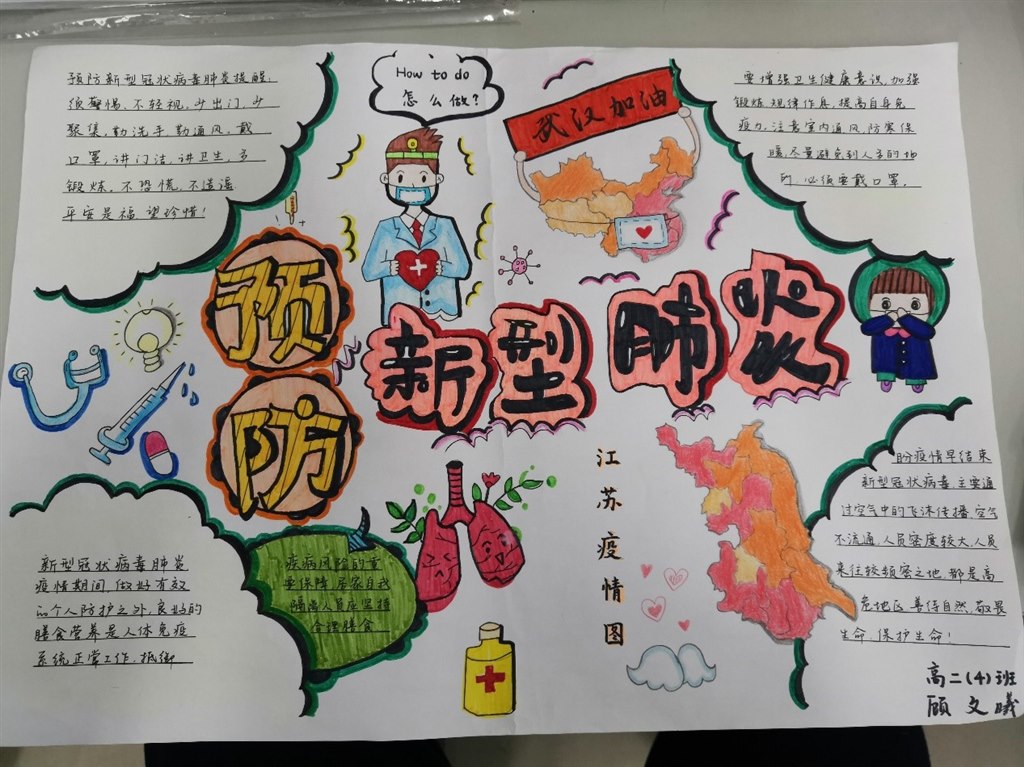 预防新型冠状病毒肺炎提醒:
须警惕、不轻视,少出门,少
聚集,勤洗手,勤通风,戴
口罩,讲门洁,讲卫生,多
锻炼,不恐慌,不造谣
平安是福,望珍惜!
How to do
怎么做?
武汉加油
要增强卫生健康意识,加强
锻炼,规律作息,提高自身免
疫力,注意室内通风,防寒保
暖,尽量避免到人多的地
方,必须要戴口罩。
预防
新型肺炎
江苏疫情图
新型冠状病毒肺炎
疫情期间,做好有效
的个人防护之外,良好的
膳食营养是人体免疫
系统正常工作,抵御
疾病风险的重
要保障,居家自我
隔离人员应坚持
合理膳食
盼疫情早结束
新型冠状病毒,主要通
过空气中的飞沫传播,空气
不流通,人员密度较大,人员
来往较频密之地,都是高
危地区,善待自然,敬畏
生命,保护生命!
高二(4)班
顾文曦